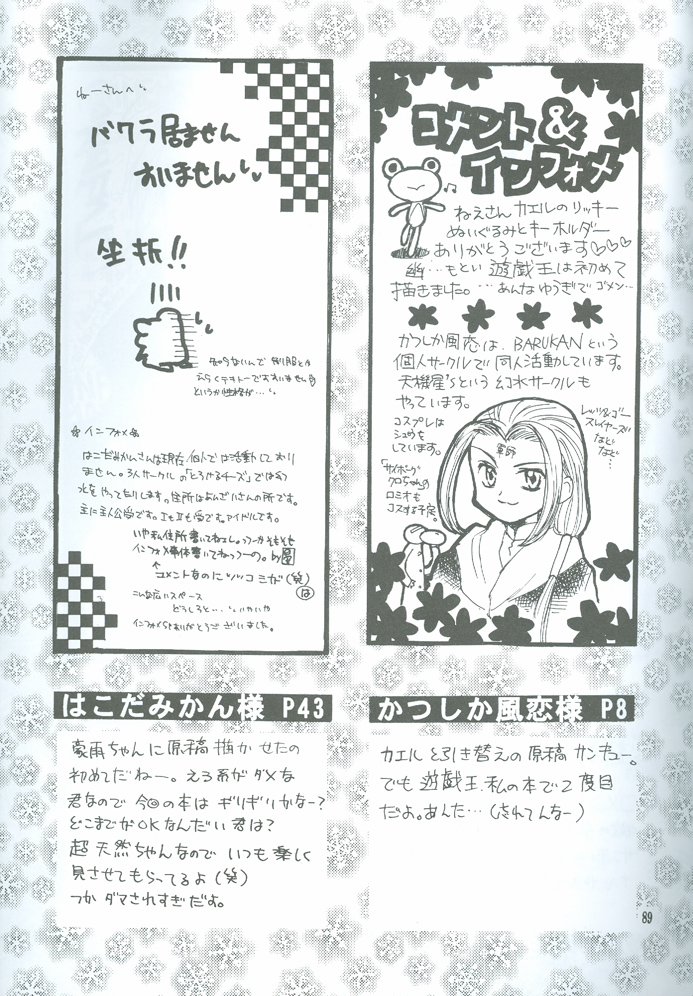 コメント&
インフォメ
ねえさん カエルのリッキー
ぬいぐるみとキーホルダー
ありがとうございます♡♡♡
幽…もとい 遊戯王は初めて
描きました。…あんなゆうぎで ゴメン…
かつしか風恋は、BARUKANという
個人サークルで 同人活動しています。
天機星'sという 幻水サークルも
やっています。
コスプレは
シュウを
しています。
ロミオも
コスする予定。
レッツ&ゴー
スレイヤーズ
などなど…
軍師
ねーさんへ
バクラ居ません
すいません
坐折!!
知らないんで 制服とか
えらくテキトーですすいません
というか性格が…
インフォメ
はこだみかんさんは現在個人では活動しており
ません。3人サークルの「とろけるチーズ」では幻
水をやってたりします。住所はよんどいさんの所です。
主に主人公受です。IもIIも受です。アイドルです。
いや私住所書いてねェしょっつーかそもそも
インフォメ自体書いてねっつーの。by
コメントなのにツッコミが(笑)
は
こんな広いスペース
どうしろと…いやいや
インフォメSPありがとうございました。
はこだみかん様 P43
豪雨ちゃんに原稿描かせたの
初めてだねー。えろ系がダメな
君なので 今回の本は ギリギリかなー?
どこまでがOKなんだい君は?
超天然ちゃんなので いつも楽しく
見させてもらってるよ(笑)
つか ダマされすぎだよ。
かつしか風恋様 P8
カエルと引き替えの原稿 サンキュー。
でも 遊戯王、私の本で2度目
だよ。あんた…(忘れてんなー)
89